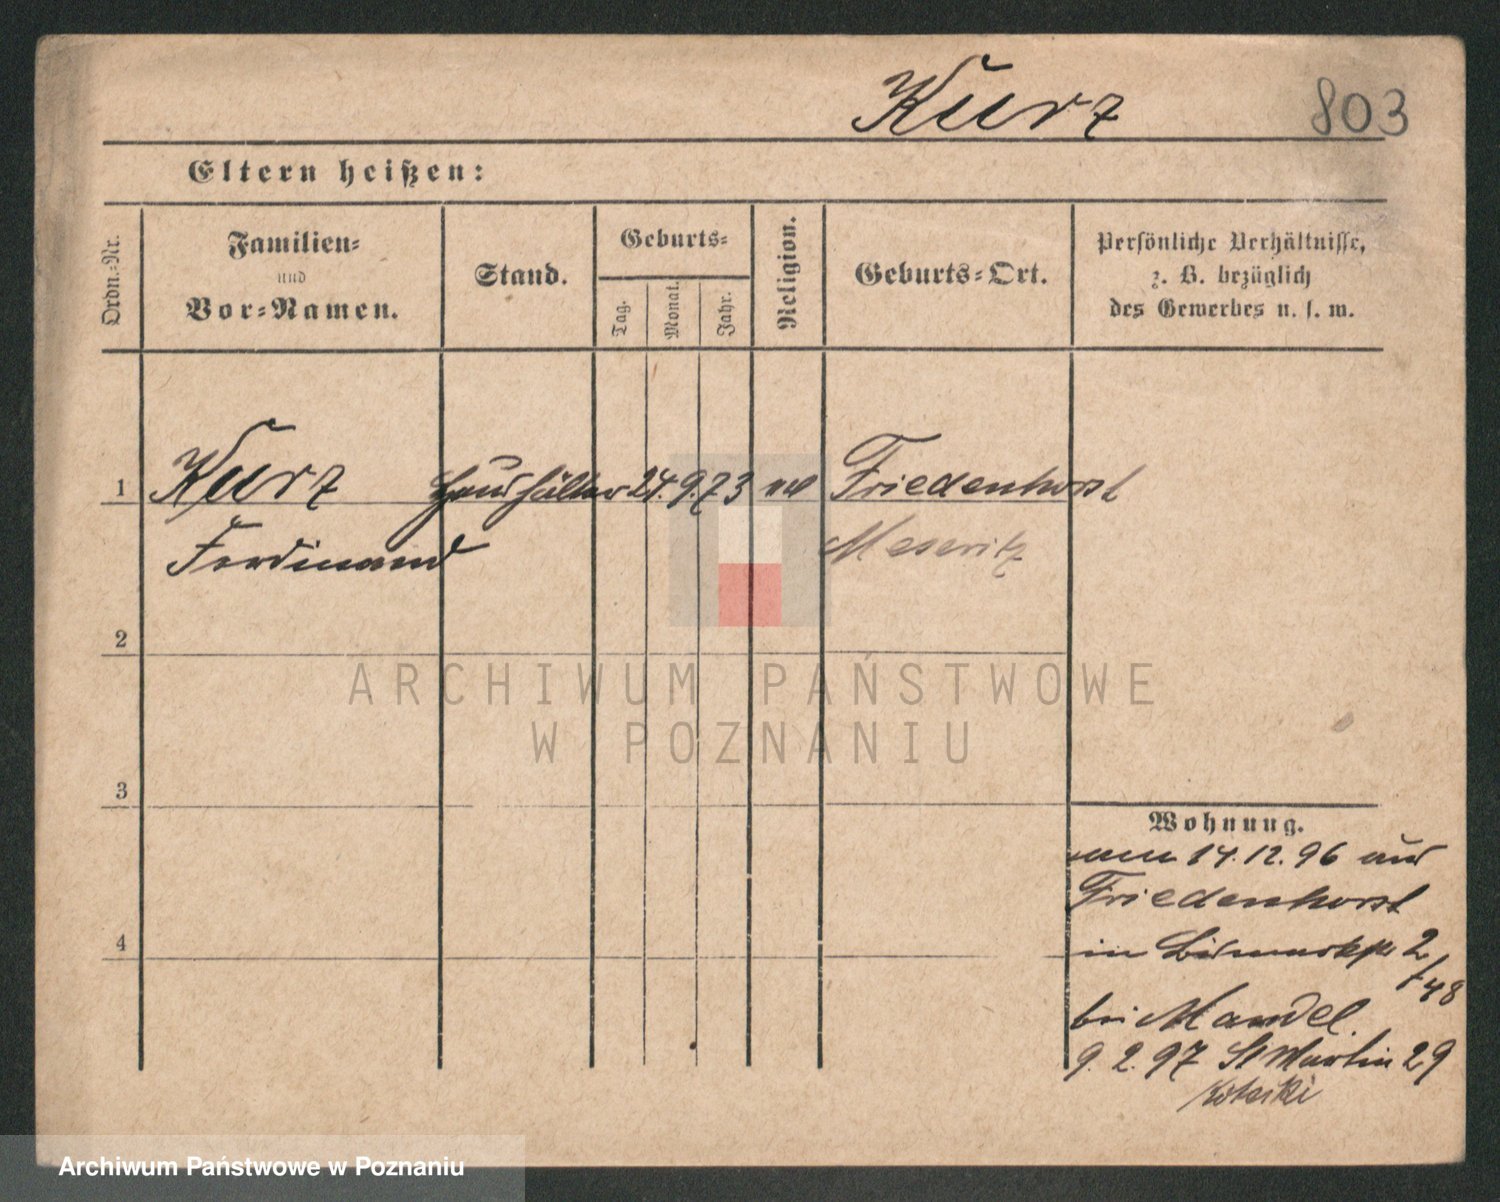 Kurz 803
Eltern heißen:
Ordn.=Nr.
Familien=
und
Vor=Namen.
Stand.
Geburts=
Tag.
Monat.
Jahr.
Religion.
Geburts=Ort.
Persönliche Verhältnisse,
z. B. bezüglich
des Gewerbes u. s. w.
1 Kurz Haushälter 24. 9. 73 Friedenhorst
Ferdinand Meseritz
2
ARCHIWUM PAŃSTWOWE
W POZNANIU
3
Wohnung.
14.12.96 aus
Friedenhorst
4
in Bismarkstr 2
/48
bei Mandel.
9. 2. 97 St Martin 29
Archiwum Państwowe w Poznaniu